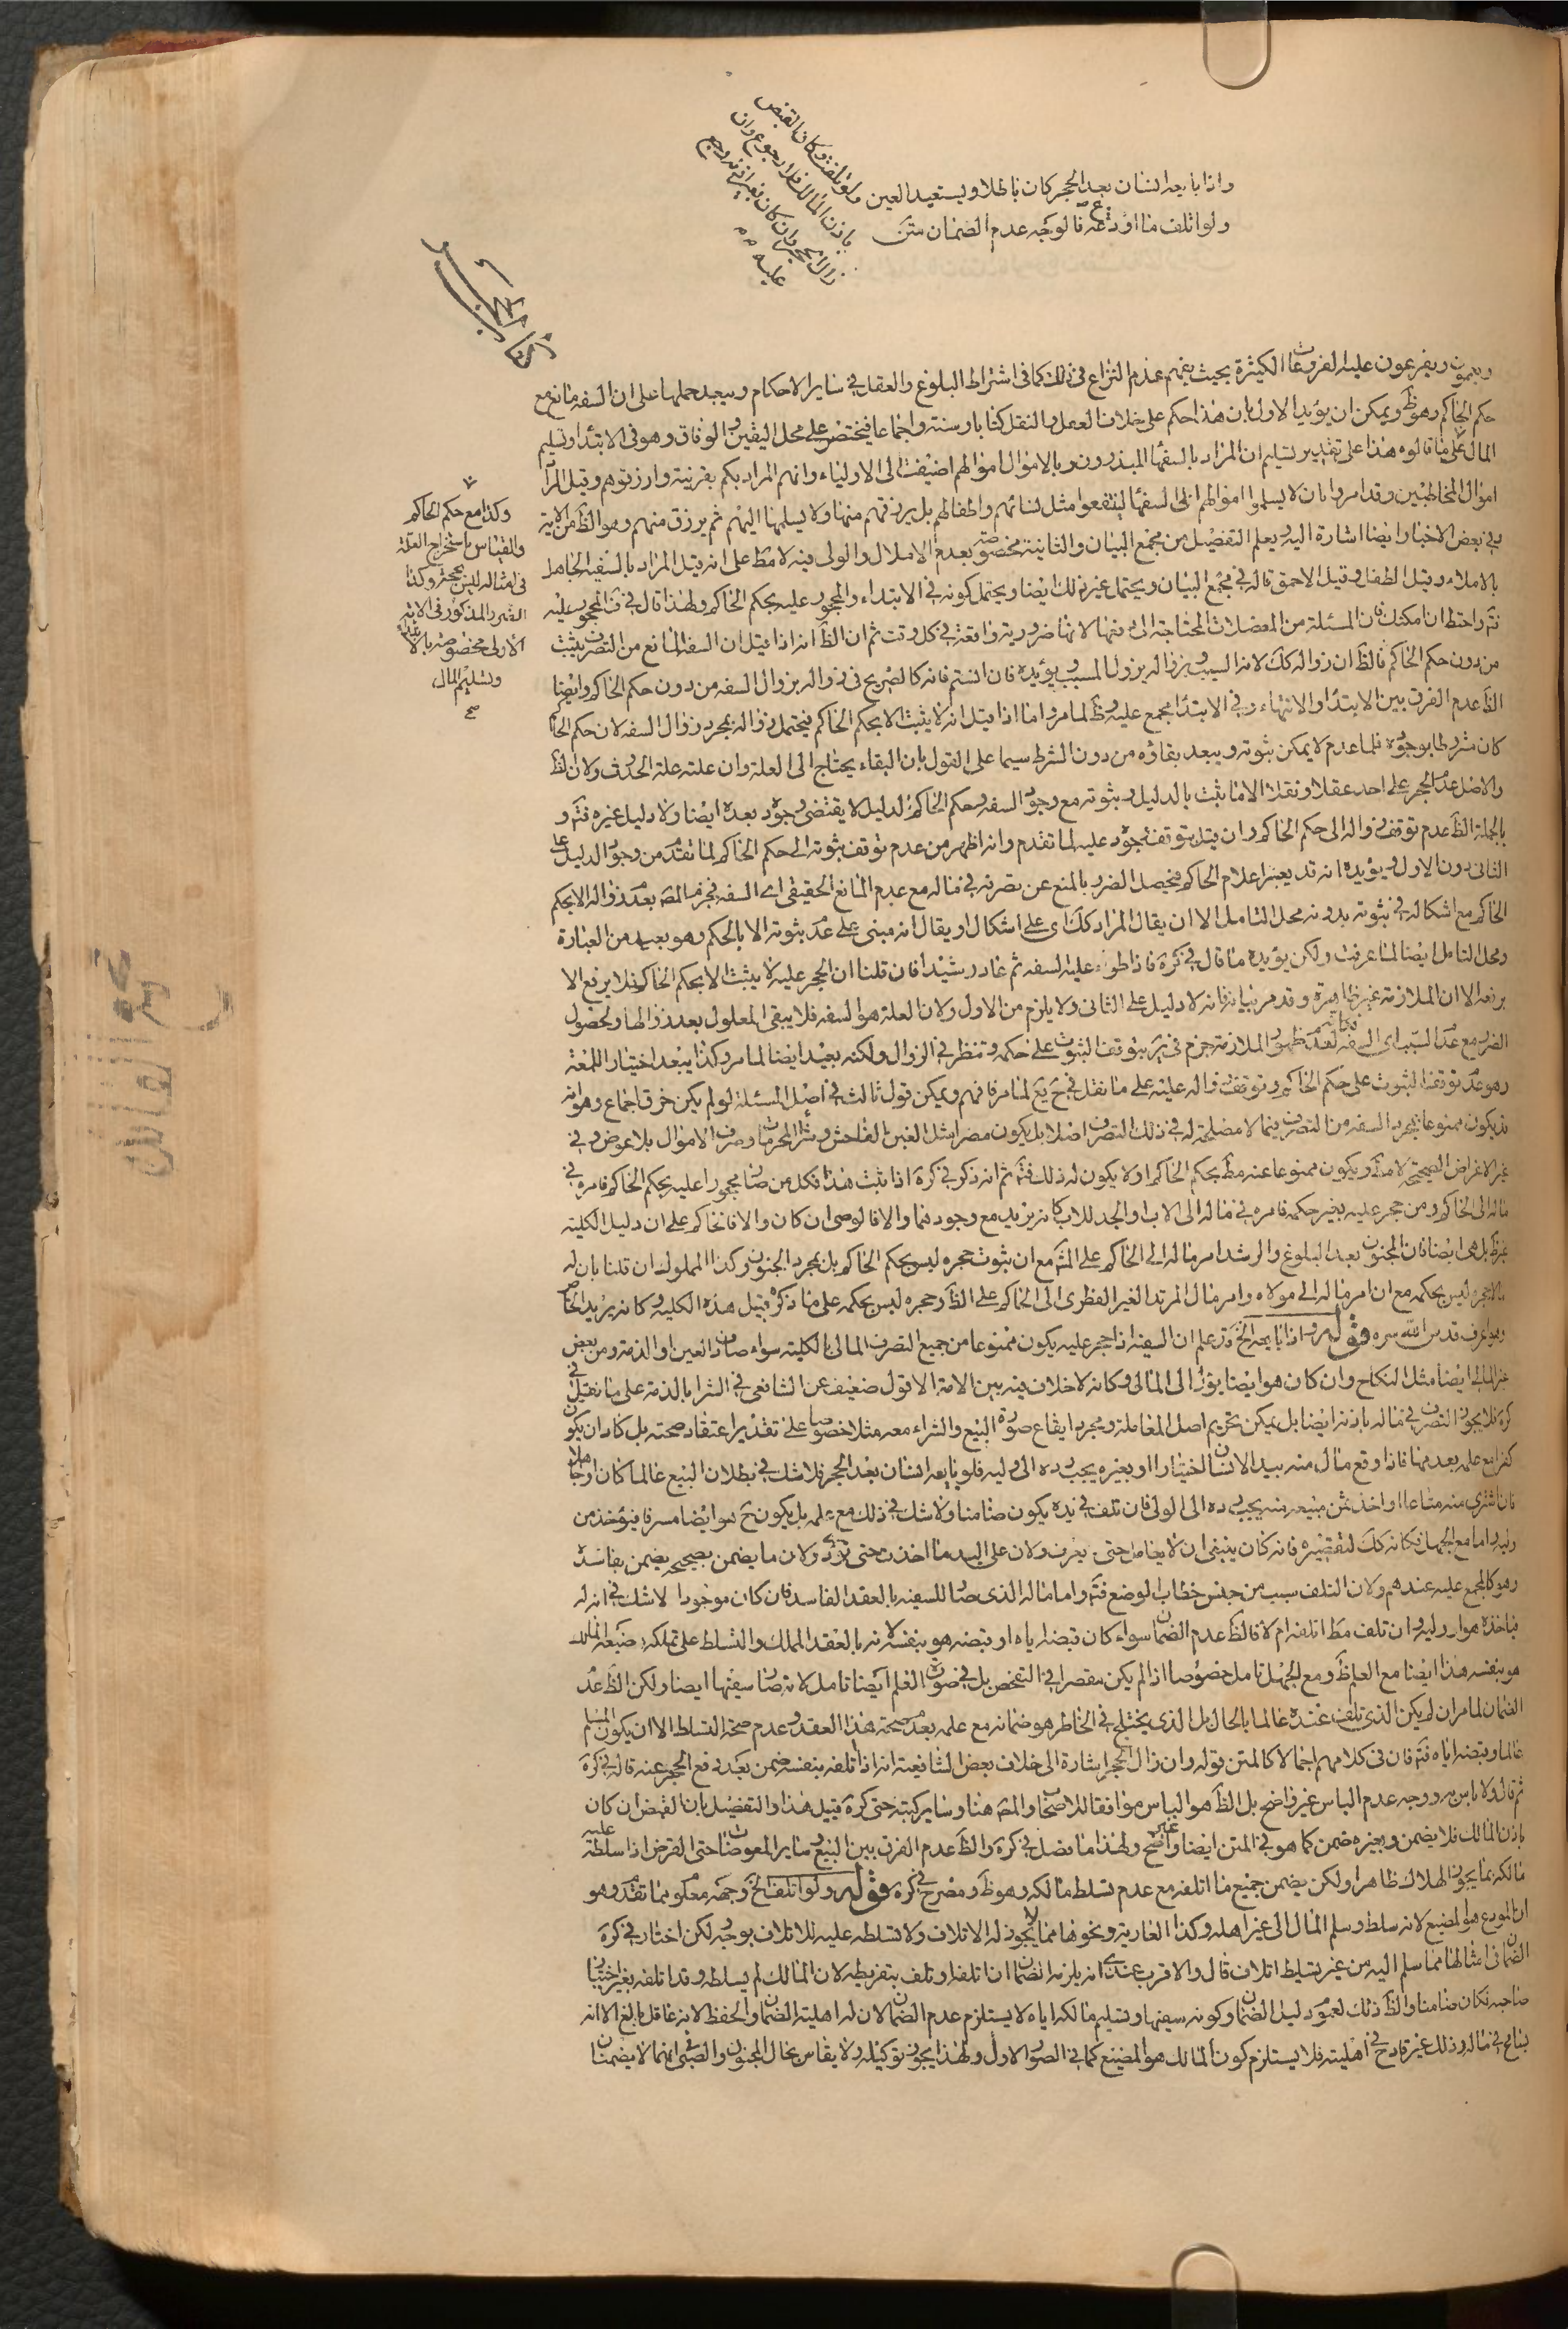 واذا بايعه انسان بعد الحجر كان باطلا ويستعيد العين
ولو اتلف ما اودعه فالوجه عدم الضمان متن
ولو تلفت وكان القبض
باذن المالك فلا رجوع وان
زال الحجر وان كان بغير اذنه رجع
عليه
كتاب الحجر
ويفرعون عليه الفروعات الكثيرة بحيث يفهم عدم النزاع في ذلك كما في اشتراط البلوغ والعقل في ساير الاحكام ويبعد حملها على ان السفه مانع مع
حكم الحاكم وهو ظ ويمكن ان يؤيد الاول بان هذا حكم على خلاف العمل والنقل كتابا وسنة واجماعا فيختص على محل اليقين والوفاق وهو في الابتدا وتسليم
المال على ما قالوه هذا على تقدير تسليم ان المراد بالسفها المبذرون وبالاموال اموالهم اضيفت الى الاولياء وانهم المراد بكم بقرينة وارزقوهم وقيل المراد
اموال المخاطبين وقد امروا بان لا يسلموا اموالهم الى السفها لينتفعوا مثل نسائهم واطفالهم بل يرزقهم منها ولا يسلمها اليهم ثم يرزق منهم وهو الظ من الاية
وفي بعض الاخبار ايضا اشارة اليه ويعلم التفصيل من مجمع البيان والثانية مخصوصة بعدم الاملال والولى فيه لا مط على انه قيل المراد بالسفيه الجاهل
بالاملاء وقيل الطفل وقيل الاحمق قاله في مجمع البيان ويحتمل غير ذلك ايضا ويحتمل كونه في الابتداء والمحجور عليه بحكم الحاكم ولهذا قال في ف المحجور عليه
فتم واحتط ان امكنك فان المسئلة من المعضلات المحتاجة الى فهمها لانها ضرورية واقعة في كل وقت ثم ان الظ انه اذا قيل ان السفه المانع من التصرف يثبت
من دون حكم الحاكم فالظ ان زواله كك لانه السبب وبزواله يزول المسبب ويؤيده فان انستم فانه كالصريح في زواله بزوال السفه من دون حكم الحاكم وايضا
الظ عدم الفرق بين الابتداء والانتهاء وفي الابتدا مجمع عليه وظ لما مر واما اذا قيل انه لا يثبت الا بحكم الحاكم فيحتمل زواله بمجرد زوال السفه لان حكم الحاكم
كان مشروطا بوجوده فلما عدم لا يمكن ثبوته ويبعد بقاؤه من دون الشرط سيما على القول بان البقاء يحتاج الى العلة وان علته علة الحدوث ولان الظ
والاصل عدم الحجر على احد عقلا ونقلا الا ما ثبت بالدليل وثبوته مع وجود السفه وحكم الحاكم لدليل لا يقتضى وجوده بعده ايضا ولا دليل غيره فتم و
بالجملة الظ عدم توقف زواله الى حكم الحاكم وان قيل بتوقف وجوده عليه لما تقدم وانه اظهر من عدم توقف ثبوته الى حكم الحاكم لما تقدم من وجود الدليل على
الثانى دون الاول ويؤيده انه قد يعتبر اعلام الحاكم فيحصل الضرر بالمنع عن تصرفه في ماله مع عدم المانع الحقيقى اى السفه فجزم المص بعدم زواله الا بحكم
الحاكم مع اشكاله في ثبوته بدونه محل التامل الا ان يقال المراد كك اى على اشكال او يقال انه مبنى على عدم ثبوته الا بالحكم وهو بعيد من العبارة
ومحل التامل ايضا لما عرفت ولكن يؤيده ما قال في كرة فاذا طرء عليه السفه ثم عاد رشيدا فان قلنا ان الحجر عليه لا يثبت الا بحكم الحاكم فلا يرفع الا
برفعه الا ان الملازمة غير ظاهرة وقد مر بيانه فانه لا دليل على الثانى ولا يلزم من الاول ولان العلة هو السفه فلا يبقى المعلول بعد زوالها ولحصول
الضرر مع عدم السبب اى السفه لعدم ظهور الملازمة جزم في ير بتوقف الثبوت على حكمه وتنظر في الزوال ولكنه بعيد ايضا لما مر وكذا يبعد اختيار اللمعة
وهو عدم توقف الثبوت على حكم الحاكم وتوقف زواله عليه على ما نقل في ح يع لما مر فافهم ويمكن قول ثالث في اصل المسئلة لو لم يكن خرق اجماع وهو انه
قد يكون ممنوعا بمجرد السفه من التصرف فيما لا مصلحة له في ذلك التصرف اصلا بل يكون مضرا مثل الغبن الفاحش وشراء المحرمات وصرف الاموال بلا عوض وفي
غير الاغراض الصحيحة لا مط ويكون ممنوعا عنه مط بحكم الحاكم او لا يكون له ذلك فتم ثم انه ذكر في كرة اذا ثبت هذا فكل من صار محجورا عليه بحكم الحاكم فامره في
ماله الى الحاكم ومن حجر عليه بغير حكمه فامره في ماله الى الاب او الجد للاب كانه يريد مع وجودهما والا فالوصى ان كان والا فالحاكم على ان دليل الكلية
غير ظ بل هى ايضا فان المجنون بعد البلوغ والرشد امر ماله الى الحاكم على المش مع ان ثبوت حجره ليس بحكم الحاكم بل بمجرد الجنون وكذا المملوك ان قلنا بان له
مالا حجره ليس بحكمه مع ان امر ماله الى مولاه وامر مال المرتد الغير الفطرى الى الحاكم على الظ وحجره ليس بحكمه على ما ذكره قبيل هذه الكلية وكانه يريد الخاص
وهو اعرف قدس الله سره قوله واذا بايعه الخ قد علم ان السفيه اذا حجر عليه يكون ممنوعا من جميع التصرف المالى بالكلية سواء صادف العين او الذمة ومن بعض
غير المالى ايضا مثل النكاح وان كان هو ايضا يؤل الى المالى وكانه لا خلاف فيه بين الامة الا قول ضعيف عن الشافعى في الشرا بالذمة على ما نقل في
كرة فلا يجوز التصرف في ماله باذنه ايضا بل يمكن تحريم اصل المعاملة ومجرد ايقاع صورة البيع والشراء معه مثلا خصوصا على تقدير اعتقاد صحته بل كاد ان يكون
كفرا مع علمه بعدمها فاذا وقع مال منه بيد الانسان اختيارا او بغيره يجب رده الى وليه فلو بايعه انسان بعد الحجر فلا شك في بطلان البيع عالما كان او جاهلا
فان اشترى منه متاعا او اخذ ثمن مبيعه منه يجب رده الى الولى فان تلف في يده يكون ضامنا ولا شك في ذلك مع علمه بل يكون ح هو ايضا مسرفا فيؤخذ من
وليه واما مع الجهل فكانه كك لتقصيره فانه كان ينبغى ان لا يعامل حتى يعرف ولان على اليد ما اخذت حتى تؤدى ولان ما يضمن بصحيحه يضمن بفاسده
وهو كالمجمع عليه عندهم ولان التلف سبب من جنس خطاب الوضع فتم واما ماله الذى صار للسفيه بالعقد الفاسد فان كان موجودا لا شك في انه له
فياخذه هو او وليه وان تلف مط اتلفه ام لا فالظ عدم الضمان سواء كان قبضه اياه او قبضه هو بنفسه لانه بالعقد المملك والتسلط على تملكه ضيعه المالك
هو بنفسه هذا ايضا مع العلم ظ ومع الجهل تامل خصوصا اذا لم يكن مقصرا في التفحص بل في صورة العلم ايضا تامل لانه صار سفيها ايضا ولكن الظ عدم
الضمان لما مر ان لم يكن الذى تلف عنده عالما بالحال بل الذى يختلج في الخاطر هو ضمانه مع علمه بعدم صحة هذا العقد وعدم صحة التسلط الا ان يكون المسلم
عالما وقبضه اياه فتم فان في كلامهم اجمالا كالمتن قوله وان زال الحجر اشارة الى خلاف بعض الشافعية انه اذا اتلفه بنفسه ضمن بعد رفع الحجر عنه قاله في كرة
ثم قال ولا باس به ووجه عدم الباس غير واضح بل الظ هو الباس موافقا للاصحاب والمص هنا وساير كتبه حتى كرة قبيل هذا والتفضيل بان القبض ان كان
باذن المالك فلا يضمن وبغيره ضمن كما هو في المتن ايضا غير واضح ولهذا ما فصل في كرة والظ عدم الفرق بين البيع وساير المعوضات حتى القرض اذا سلطه عليه
مالكه بما يجوز الهلاك ظاهرا ولكن يضمن جميع ما اتلفه مع عدم تسلط مالكه وهو ظ ومصرح في كرة قوله ولو اتلف الخ وجهه معلوم مما تقدم وهو
ان المودع هو المضيع لانه سلط وسلم المال الى غير اهله وكذا العارية ونحوها مما لا يجوز له الاتلاف ولا تسلطه عليه للاتلاف بوجه لكن اختار في كرة
الضمان في امثالها مما سلم اليه من غير تسليط اتلاف قال والاقرب عندى انه يلزمه الضمان ان اتلفه او تلف بتفريطه لان المالك لم يسلطه وقد اتلفه بغير اختيار
صاحبه فكان ضامنا والظ ذلك لعموم دليل الضمان وكونه سفيها وتسليم مالكه اياه لا يستلزم عدم الضمان لان له اهلية الضمان والحفظ لانه عاقل بالغ الا انه
يتسامح في ماله وذلك غير قادح في اهليته فلا يستلزم كون المالك هو المضيع كما في الصور الاول ولهذا يجوز توكيله ولا يقاس بحال المجنون والصبى انهما لا يضمنان
وكذا مع حكم الحاكم
والقياس باستخراج العلة
في امثاله ليس بحجة وكذا
القيد والمذكور في الاية
الاولى مخصوصة بالابتداء
وتسليم المال
صح